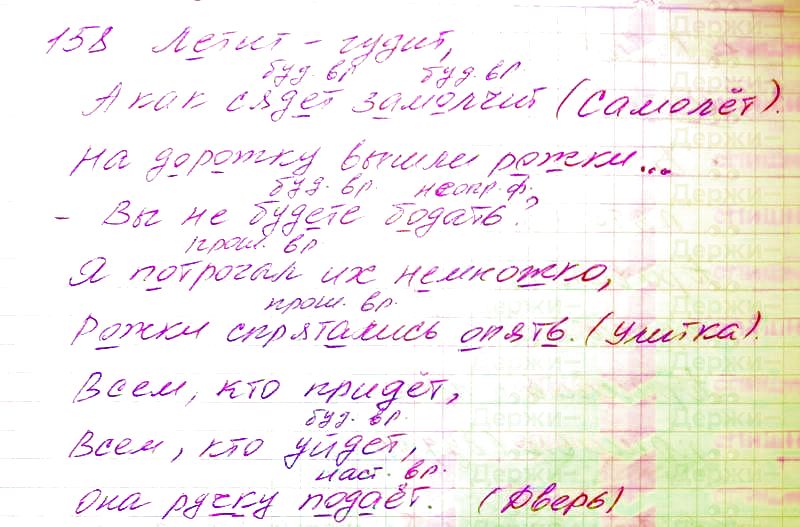 158 Летит - гудит,
буд. вр. буд. вр.
А как сядет замолчит (Самолёт).
На дорожку вышли рожки...
буд. вр. неопр. ф.
- Вы не будете бодать?
прош. вр.
Я потрогал их немножко,
прош. вр.
Рожки спрятались опять. (Улитка).
Всем, кто придёт,
буд. вр.
Всем, кто уйдет,
наст. вр.
Она ручку подаёт. (Дверь)